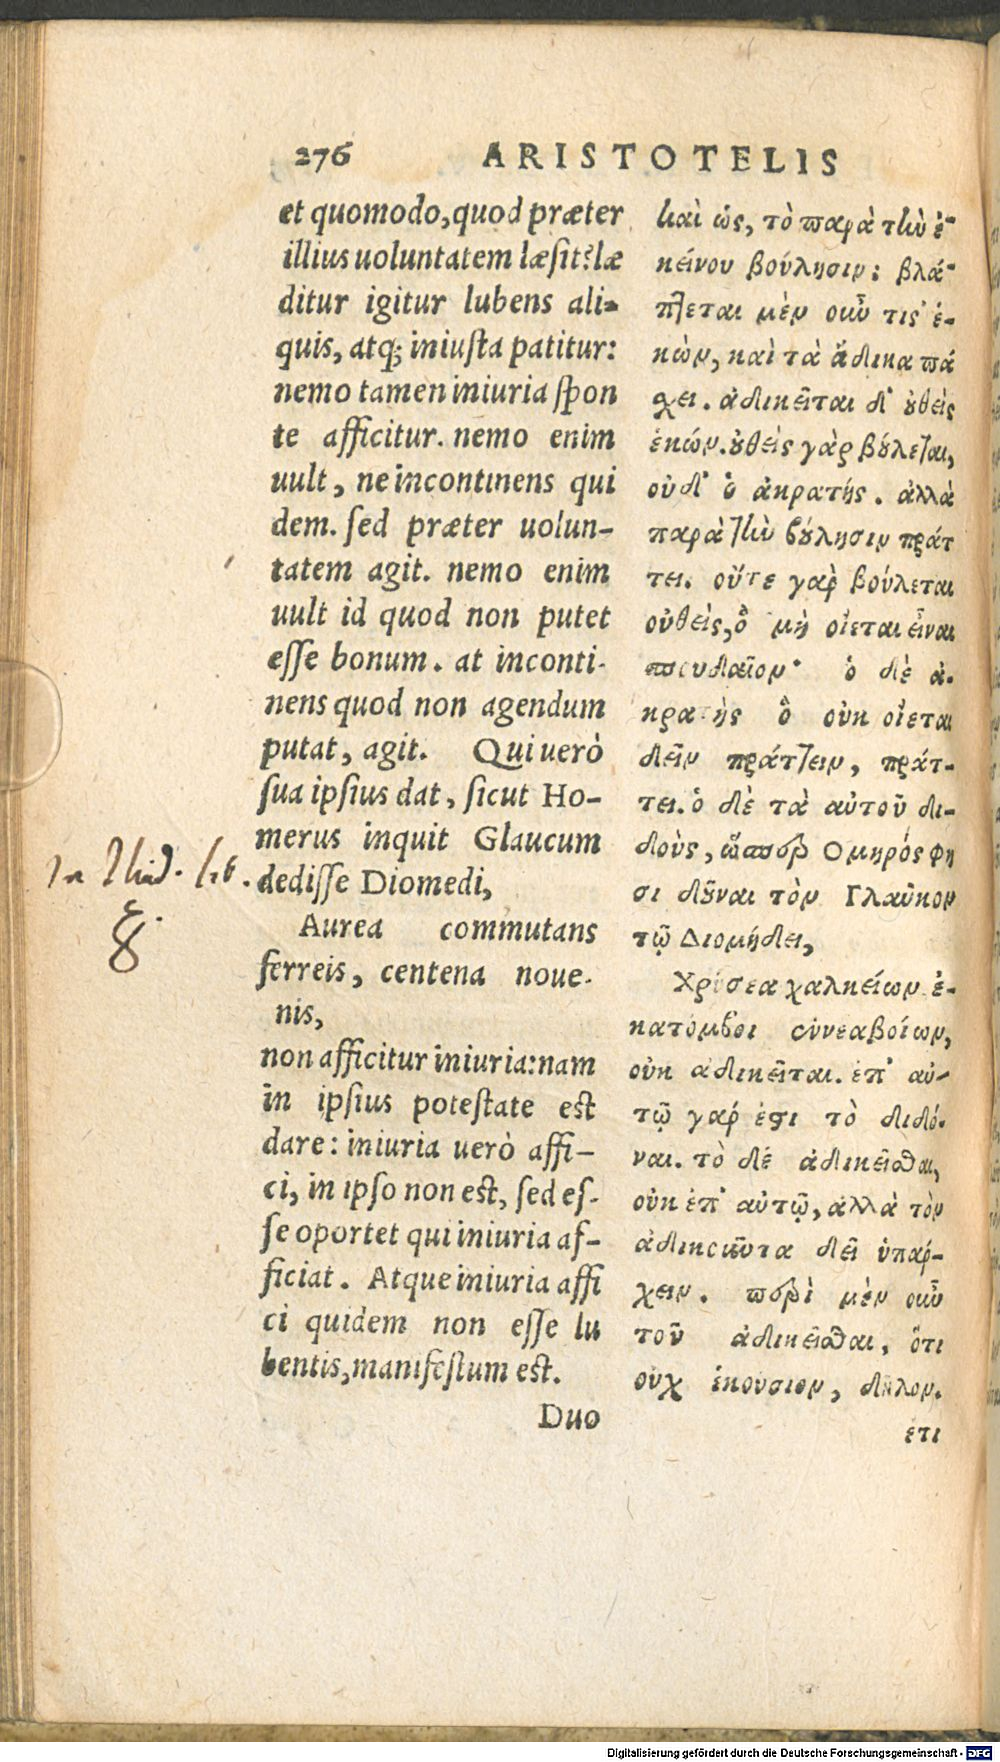 276 ARISTOTELIS
et quomodo, quod præter
illius uoluntatem læsit? læ
ditur igitur lubens ali-
quis, atq; iniusta patitur:
nemo tamen iniuria spon
te afficitur. nemo enim
uult, ne incontinens qui
dem. sed præter uolun-
tatem agit. nemo enim
uult id quod non putet
esse bonum. at inconti-
nens quod non agendum
putat, agit. Qui uerò
sua ipsius dat, sicut Ho-
merus inquit Glaucum
dedisse Diomedi,
Aurea commutans
ferreis, centena noue-
nis,
non afficitur iniuria: nam
in ipsius potestate est
dare: iniuria uerò affi-
ci, in ipso non est, sed es-
se oportet qui iniuria af-
ficiat. Atque iniuria affi
ci quidem non esse lu
bentis, manifestum est.
Duo
καὶ ὡς, τὸ παρὰ τὴν ἐ-
κείνου βούλησιν; βλά-
πτεται μὲν οὖν τις ἑ-
κὼν, καὶ τὰ ἄδικα πά
σχει. ἀδικεῖται δ' οὐθεὶς
ἑκών. οὐθεὶς γὰρ βούλεται,
οὐδ' ὁ ἀκρατής. ἀλλὰ
παρὰ τὴν βούλησιν πράτ
τει. οὔτε γὰρ βούλεται
οὐθεὶς, ὃ μὴ οἴεται εἶναι
σπουδαῖον· ὁ δὲ ἀ-
κρατὴς ὃ οὐκ οἴεται
δεῖν πράττειν, πράτ-
τει. ὁ δὲ τὰ αὑτοῦ δι-
δοὺς, ὥσπερ Ομηρός φη
σι δοῦναι τὸν Γλαῦκον
τῷ Διομήδει,
Χρύσεα χαλκείων ἑ-
κατόμβοι ἐννεαβοίων,
οὐκ ἀδικεῖται. ἐπ' αὐ-
τῷ γάρ ἐστι τὸ διδό-
ναι. τὸ δὲ ἀδικεῖσθαι,
οὐκ ἐπ' αὐτῷ, ἀλλὰ τὸν
ἀδικοῦντα δεῖ ὑπάρ-
χειν. περὶ μὲν οὖν
τοῦ ἀδικεῖσθαι, ὅτι
οὐχ ἑκούσιον, δῆλον.
ετι
In Iliad. lib.
8.
Digitalisierung gefördert durch die Deutsche Forschungsgemeinschaft - DFG